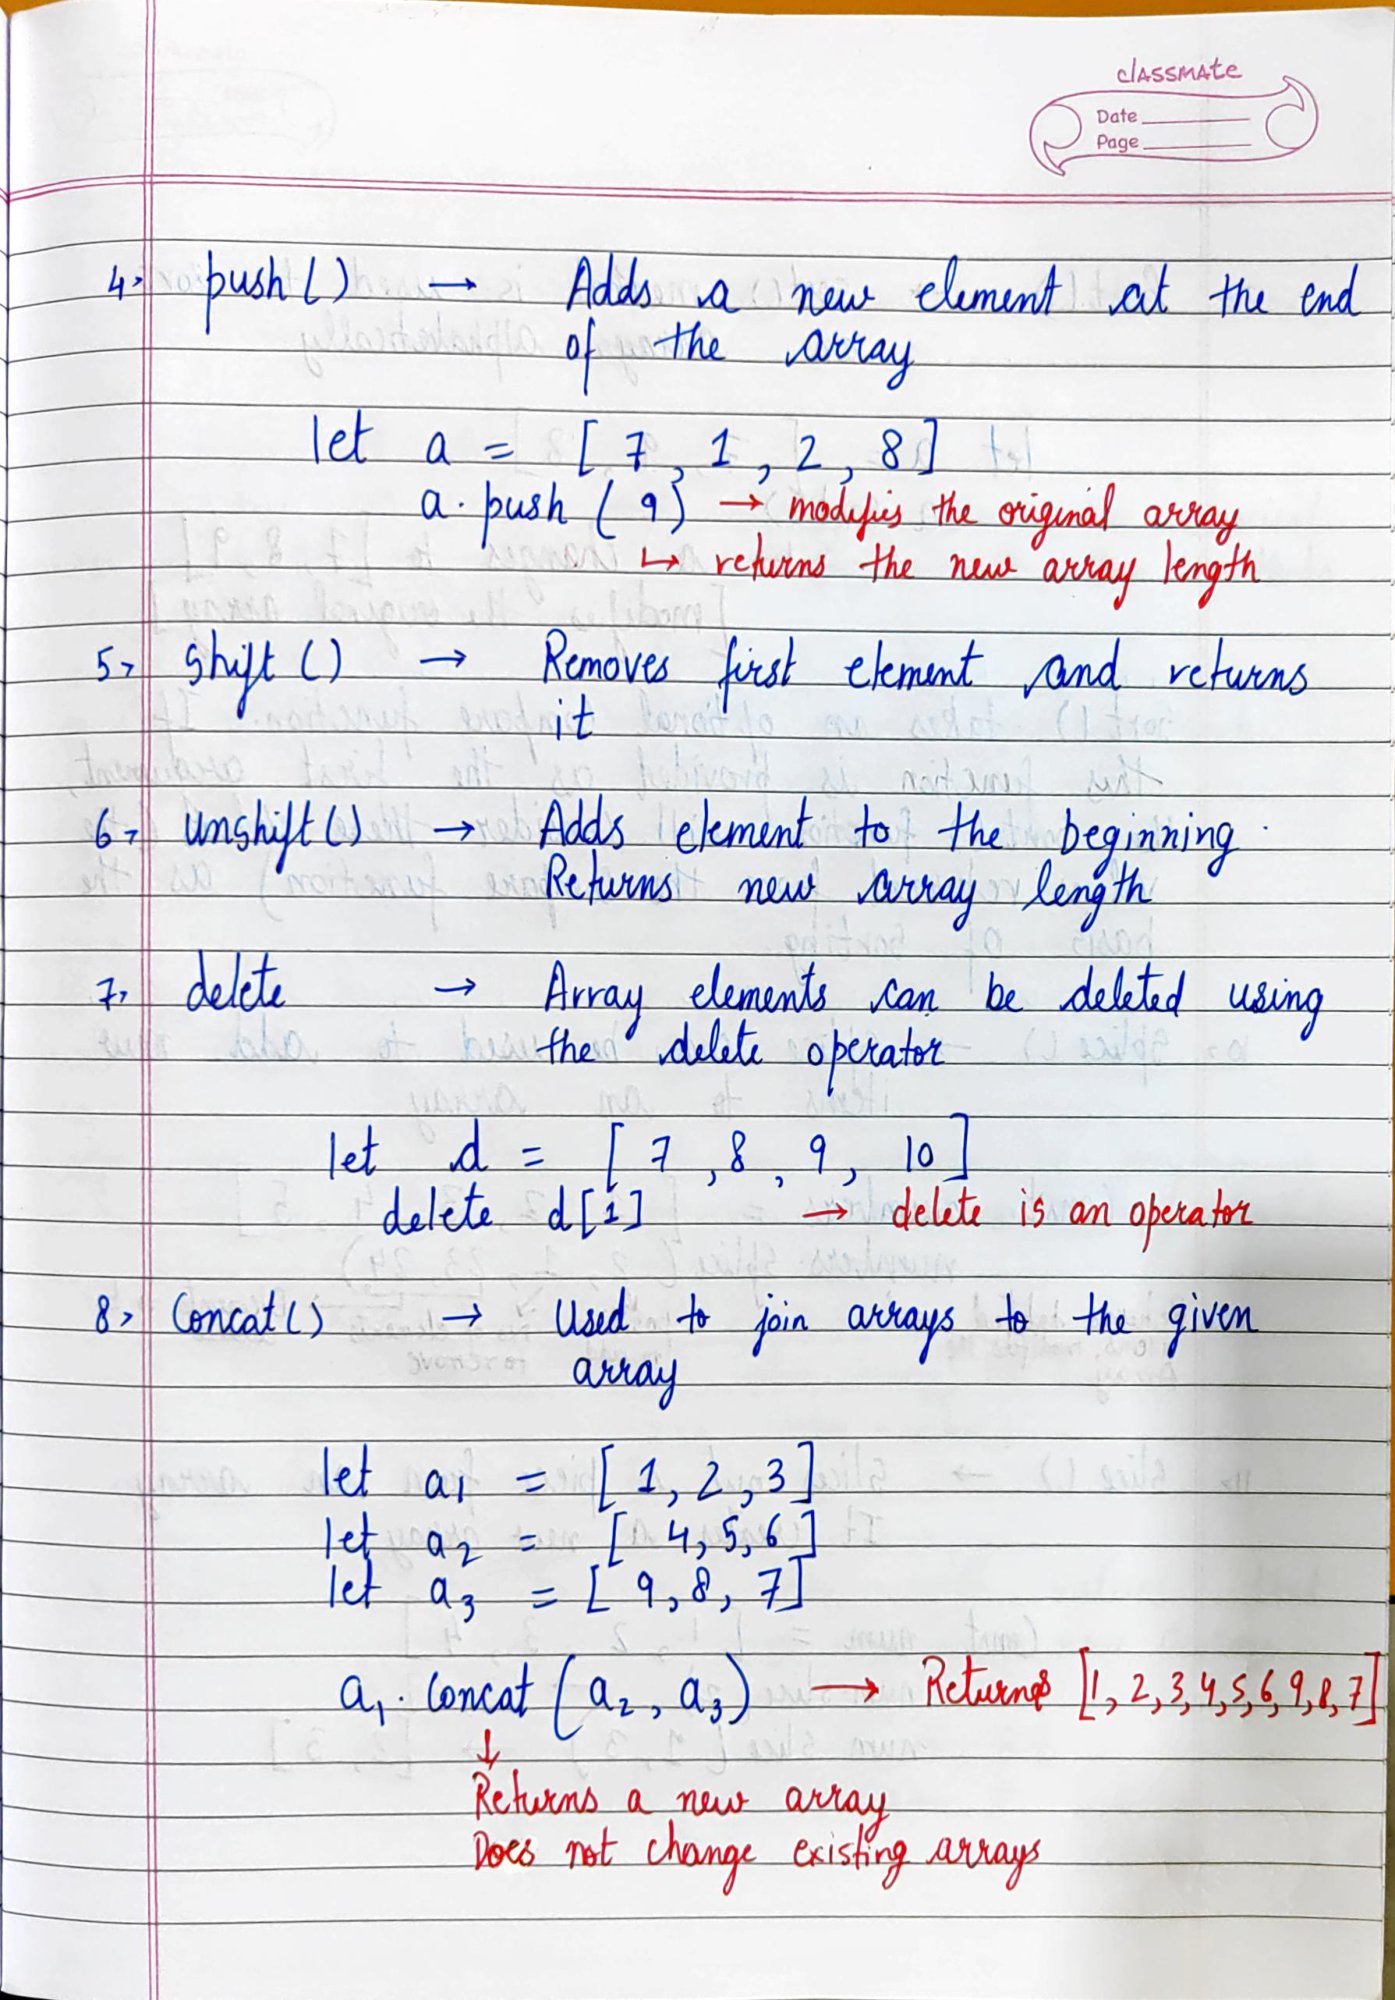 classmate
Date
Page
4> push() → Adds a new element at the end
of the array
let a = [7, 1, 2, 8]
a.push(9) → modifies the original array
↳ returns the new array length
5> Shift() → Removes first element and returns
it
6> unshift() → Adds element to the beginning.
Returns new array length
7> delete → Array elements can be deleted using
the delete operator
let d = [7, 8, 9, 10]
delete d[1] → delete is an operator
8> Concat() → Used to join arrays to the given
array
let a1 = [1, 2, 3]
let a2 = [4, 5, 6]
let a3 = [9, 8, 7]
a1.Concat(a2, a3) → Returns [1, 2, 3, 4, 5, 6, 9, 8, 7]
↓
Returns a new array
Does not change existing arrays